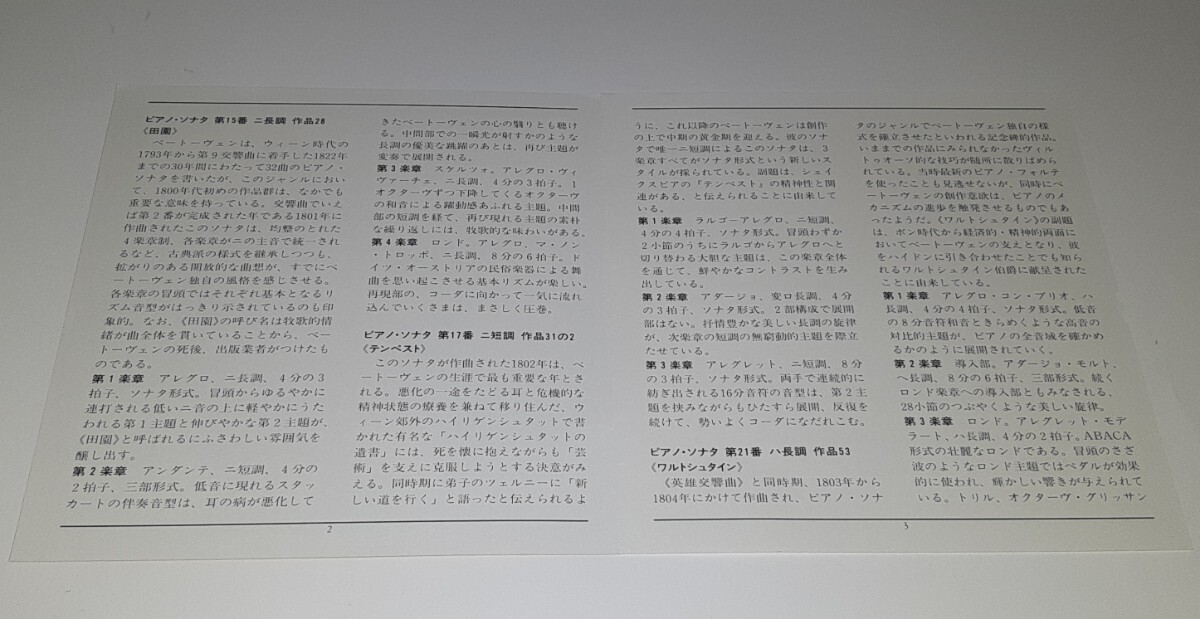 ピアノ・ソナタ 第15番 ニ長調 作品28
《田園》
ベートーヴェンは、ウィーン時代の
1793年から第9交響曲に着手した1822年
までの30年間にわたって32曲のピアノ・
ソナタを書いたが、このジャンルにおい
て、1800年代初めの作品群は、なかでも
重要な意味を持っている。交響曲でいえ
ば第2番が完成された年である1801年に
作曲されたこのソナタは、均整のとれた
4楽章制、各楽章がニの主音で統一され
るなど、古典派の様式を継承しつつも、
拡がりのある開放的な曲想が、すでにベ
ートーヴェン独自の風格を感じさせる。
各楽章の冒頭ではそれぞれ基本となるリ
ズム音型がはっきり示されているのも印
象的。なお、《田園》の呼び名は牧歌的情
緒が曲全体を貫いていることから、ベー
トーヴェンの死後、出版業者がつけたも
のである。
第1楽章 アレグロ、ニ長調、4分の3
拍子、ソナタ形式。冒頭からゆるやかに
連打される低いニ音の上に軽やかにうた
われる第1主題と伸びやかな第2主題が、
《田園》と呼ばれるにふさわしい雰囲気を
醸し出す。
第2楽章 アンダンテ、ニ短調、4分の
2拍子、三部形式。低音に現れるスタッ
カートの伴奏音型は、耳の病が悪化して
きたベートーヴェンの心の翳りとも聴け
る。中間部での一瞬光が射すかのような
長調の優美な跳躍のあとは、再び主題が
変奏で展開される。
第3楽章 スケルツォ。アレグロ・ヴィ
ヴァーチェ、ニ長調、4分の3拍子。1
オクターヴずつ下降してくるオクターヴ
の和音による躍動感あふれる主題。中間
部の短調を経て、再び現れる主題の素朴
な繰り返しには、牧歌的な味わいがある。
第4楽章 ロンド。アレグロ、マ・ノン
・トロッポ、ニ長調、8分の6拍子。ド
イツ・オーストリアの民俗楽器による舞
曲を思い起こさせる基本リズムが楽しい。
再現部の、コーダに向かって一気に流れ
込んでいくさまは、まさしく圧巻。
ピアノ・ソナタ 第17番 ニ短調 作品31の2
《テンペスト》
このソナタが作曲された1802年は、ベ
ートーヴェンの生涯で最も重要な年とさ
れる。悪化の一途をたどる耳と危機的な
精神状態の療養を兼ねて移り住んだ、ウ
ィーン郊外のハイリゲンシュタットで書
かれた有名な「ハイリゲンシュタットの
遺書」には、死を懐に抱えながらも「芸
術」を支えに克服しようとする決意がみ
える。同時期に弟子のツェルニーに「新
しい道を行く」と語ったと伝えられるよ
2
うに、これ以降のベートーヴェンは創作
の上で中期の黄金期を迎える。彼のソナ
タで唯一ニ短調によるこのソナタは、3
楽章すべてがソナタ形式という新しいス
タイルが採られている。副題は、シェイ
クスピアの『テンペスト』の精神性と関
連がある、と伝えられることに由来して
いる。
第1楽章 ラルゴーアレグロ、ニ短調、
4分の4拍子、ソナタ形式。冒頭わずか
2小節のうちにラルゴからアレグロへと
切り替わる大胆な主題は、この楽章全体
を通じて、鮮やかなコントラストを生み
出している。
第2楽章 アダージョ、変ロ長調、4分
の3拍子、ソナタ形式。2部構成で展開
部はない。抒情豊かな美しい長調の旋律
が、次楽章の短調の無窮動的主題を際立
たせている。
第3楽章 アレグレット、ニ短調、8分
の3拍子、ソナタ形式。両手で連続的に
紡ぎ出される16分音符の音型は、第2主
題を挟みながらもひたすら展開、反復を
続けて、勢いよくコーダになだれこむ。
ピアノ・ソナタ 第21番 ハ長調 作品53
《ワルトシュタイン》
《英雄交響曲》と同時期、1803年から
1804年にかけて作曲され、ピアノ・ソナ
タのジャンルでベートーヴェン独自の様
式を確立させたといわれる記念碑的作品。
いままでの作品にみられなかったヴィル
トゥオーソ的な技巧が随所に散りばめら
れている。当時最新のピアノ・フォルテ
を使ったことも見逃せないが、同時にベ
ートーヴェンの創作意欲は、ピアノのメ
カニズムの進歩を触発させるものでもあ
ったようだ。《ワルトシュタイン》の副題
は、ボン時代から経済的・精神的両面に
おいてベートーヴェンの支えとなり、彼
をハイドンに引き合わせたことでも知ら
れるワルトシュタイン伯爵に献呈された
ことに由来している。
第1楽章 アレグロ・コン・ブリオ、ハ
長調、4分の4拍子、ソナタ形式。低音
の8分音符和音ときらめくような高音の
対比的主題が、ピアノの全音域を確かめ
るかのように展開されていく。
第2楽章 導入部。アダージョ・モルト、
ヘ長調、8分の6拍子、三部形式。続く
ロンド楽章への導入部ともみなされる、
28小節のつぶやくような美しい旋律。
第3楽章 ロンド。アレグレット・モデ
ラート、ハ長調、4分の2拍子。ABACA
形式の壮麗なロンドである。冒頭のさざ
波のようなロンド主題ではペダルが効果
的に使われ、輝かしい響きが与えられて
いる。トリル、オクターヴ・グリッサン
3